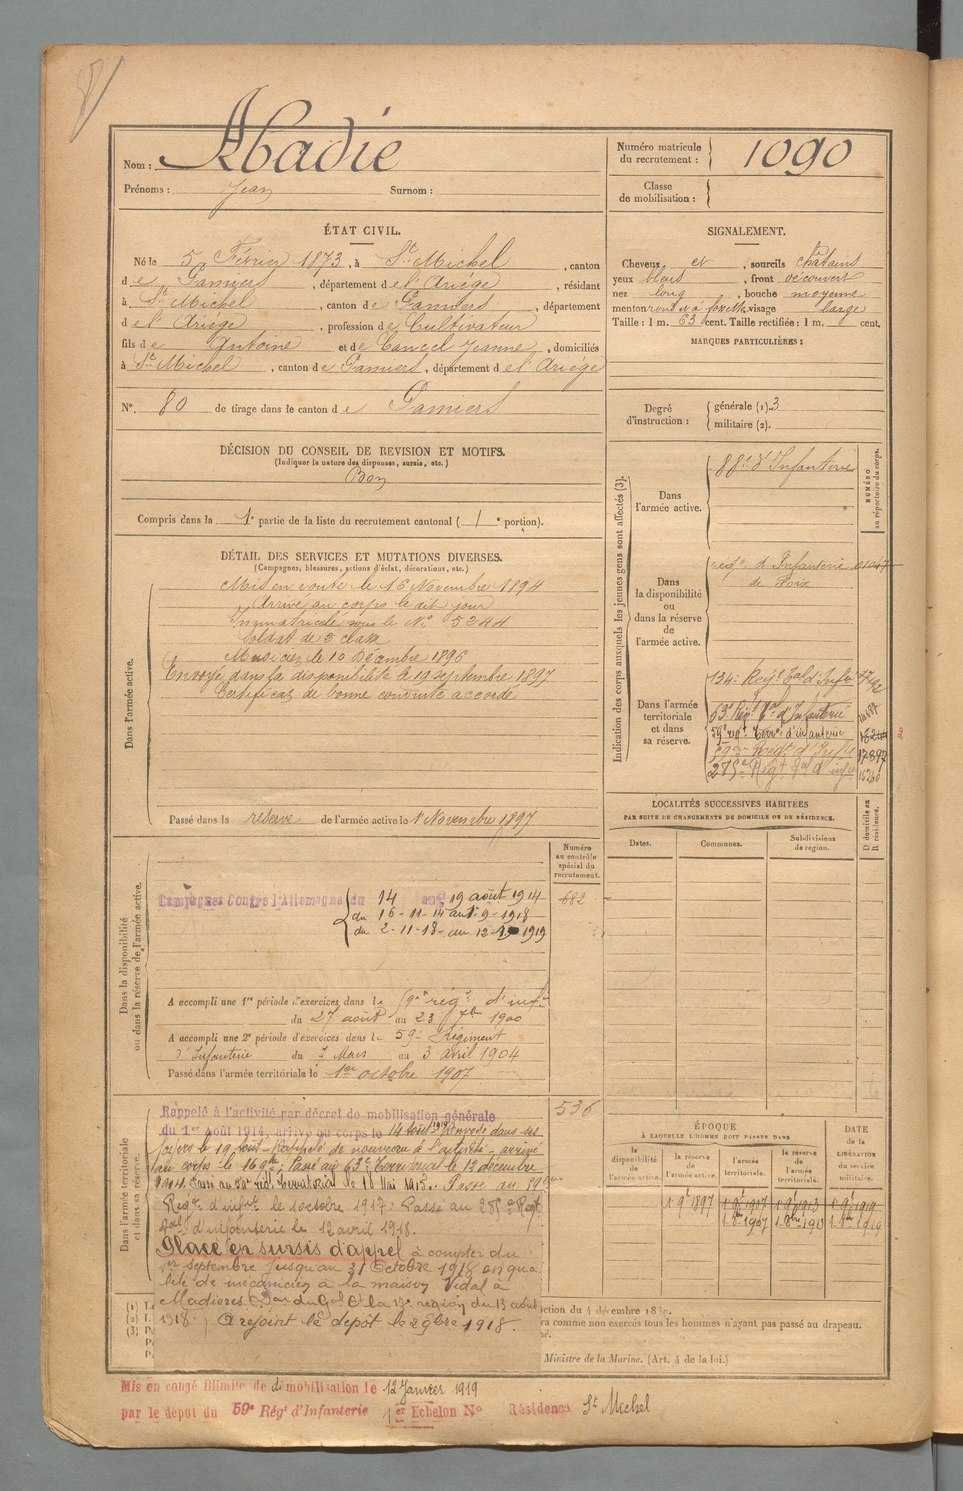 Nom : Abadie
Prénoms : Jean Surnom :
Numéro matricule du recrutement : 1090
Classe de mobilisation :
ÉTAT CIVIL.
Né le 5 Février 1873, à St Michel, canton
de Pamiers, département de l'Ariège, résidant
à St Michel, canton de Pamiers, département
de l'Ariège, profession de Cultivateur
fils de Antoine et de Cancel Jeanne, domiciliés
à St Michel, canton de Pamiers, département de l'Ariège
N° 80 de tirage dans le canton de Pamiers
SIGNALEMENT.
Cheveux et, sourcils châtains
yeux bleus, front découvert
nez long, bouche moyenne
menton rond à fossette visage large
Taille : 1 m. 63 cent. Taille rectifiée : 1 m. cent.
MARQUES PARTICULIÈRES :
Degré d'instruction : générale (1). 3
militaire (2).
DÉCISION DU CONSEIL DE REVISION ET MOTIFS.
(Indiquer la nature des dispenses, sursis, etc.)
Bon
Compris dans la 1e partie de la liste du recrutement cantonal ( 1e portion).
DÉTAIL DES SERVICES ET MUTATIONS DIVERSES.
(Campagnes, blessures, actions d'éclat, décorations, etc.)
Dans l'armée active.
Mis en route le 16 Novembre 1894
Arrivé au corps le dit jour
Immatriculé sous le N° 5244
Soldat de 2 classe
Musicien le 10 Décembre 1896
Envoyé dans la disponibilité le 19 septembre 1897
Certificat de bonne conduite accordé
Passé dans la réserve de l'armée active le 1 Novembre 1897
Indication des corps auxquels les jeunes gens sont affectés (3).
NUMÉRO au répertoire du corps.
Dans l'armée active.
88e d'Infanterie
Dans la disponibilité ou dans la réserve de l'armée active.
régt d'Infanterie
de Foix
Dans l'armée territoriale et dans sa réserve.
134e Régt Tal d'Infie
63e Régt Tal d'Infanterie
59e régt Terral d'infanterie
59e Régt d'Infie
285e Régt Tal d'infie
16260
LOCALITÉS SUCCESSIVES HABITÉES
PAR SUITE DE CHANGEMENTS DE DOMICILE OU DE RÉSIDENCE.
Dates. Communes. Subdivisions de région. D domicile ou R résidence.
Dans la disponibilité ou dans la réserve de l'armée active.
Numéro au contrôle spécial du recrutement.
682
Campagnes Contre l'Allemagne du 14 au 19 août 1914
du 16-11-14 au 1-9-1918
du 2-11-18- au 12-1-1919
A accompli une 1re période d'exercices dans le 59e régt d'infie
du 27 août au 23 7bre 1900
A accompli une 2e période d'exercices dans le 59e Régiment
d'Infanterie du 7 Mars au 3 avril 1904
Passé dans l'armée territoriale le 1er octobre 1907
Dans l'armée territoriale et dans sa réserve.
536
Rappelé à l'activité par décret de mobilisation générale
du 1er Août 1914, arrivé au corps le 14 Août 1914 Renvoyé dans ses
foyers le 19 Août - Rappelé de nouveau à l'activité - arrivé
au corps le 16 9bre Passé au 63e Territorial le 12 décembre
1914. Passé au 59e régt Territorial le 18 Mai 1915. Passé au 59e
Régt d'infie le 1 octobre 1917. Passé au 285e Régt
Tal d'infanterie le 12 avril 1918.
Placé en sursis d'appel à compter du
1er septembre jusqu'au 31 Octobre 1918 en qua
lité de mécanicien à la maison Vidal à
Madières. du Gal Ct la 17e région du 13 août
1918. A rejoint le dépôt le 2 9bre 1918.
ÉPOQUE
À LAQUELLE L'HOMME DOIT PASSER DANS
DATE de la LIBÉRATION du service militaire.
la disponibilité de l'armée active. la réserve de l'armée active. l'armée territoriale. la réserve de l'armée territoriale.
1 9e 1897 1 9e 1907 1 9e 1913 1 9e 1919
1 8bre 1907 1 8bre 1913 1 8bre 1919
(1)
(2)
(3)
ction du 4 décembre 18
ra comme non exercés tous les hommes n'ayant pas passé au drapeau.
Ministre de la Marine. (Art. 4 de la loi.)
Mis en congé illimité de démobilisation le 12 Janvier 1919
par le dépôt du 59e Régt d'Infanterie 1er Echelon N° Résidence St Michel